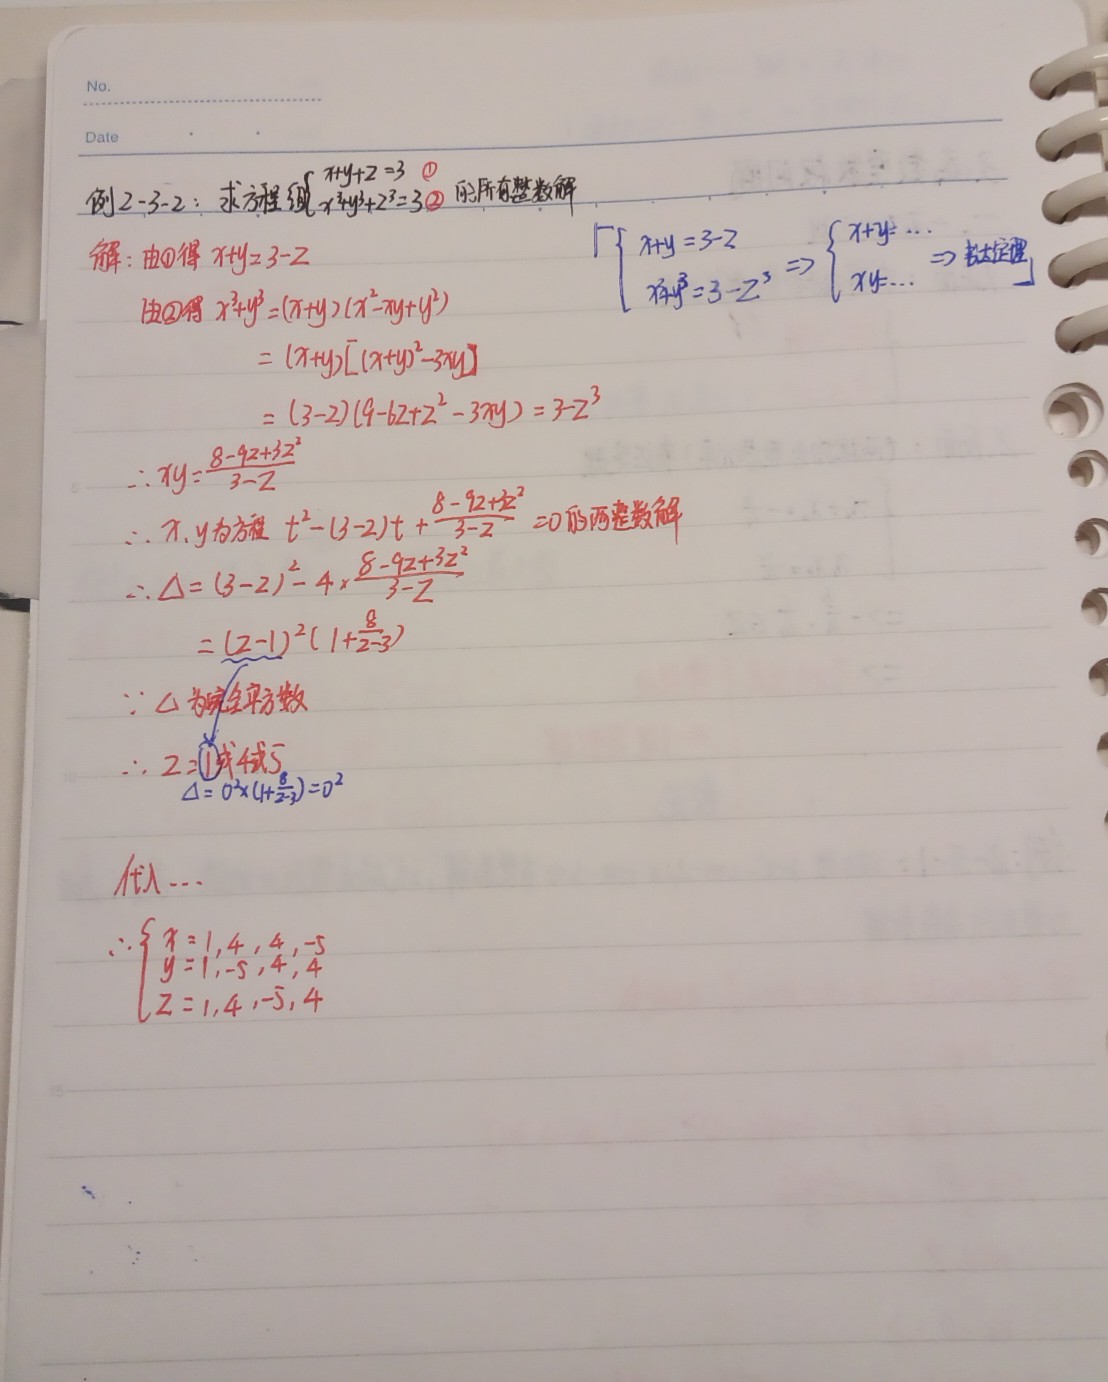 No.
Date
例2-3-2: 求方程组{x+y+z=3 ①
x³+y³+z³=3 ② 的所有整数解
解: 由①得 x+y=3-z
「{x+y=3-z
x³+y³=3-z³ => {x+y=…
xy=… => 韦达定理」
由②得 x³+y³=(x+y)(x²-xy+y²)
=(x+y)[(x+y)²-3xy]
=(3-z)(9-6z+z²-3xy)=3-z³
∴xy=(8-9z+3z²)/(3-z)
∴x、y为方程 t²-(3-z)t+(8-9z+3z²)/(3-z)=0的两整数解
∴△=(3-z)²-4×(8-9z+3z²)/(3-z)
=(z-1)²(1+8/(z-3))
∵△为完全平方数
∴z=1或4或5
△=0²×(1+8/(z-3))=0²
代入…
∴{x=1,4,4,-5
y=1,-5,4,4
z=1,4,-5,4